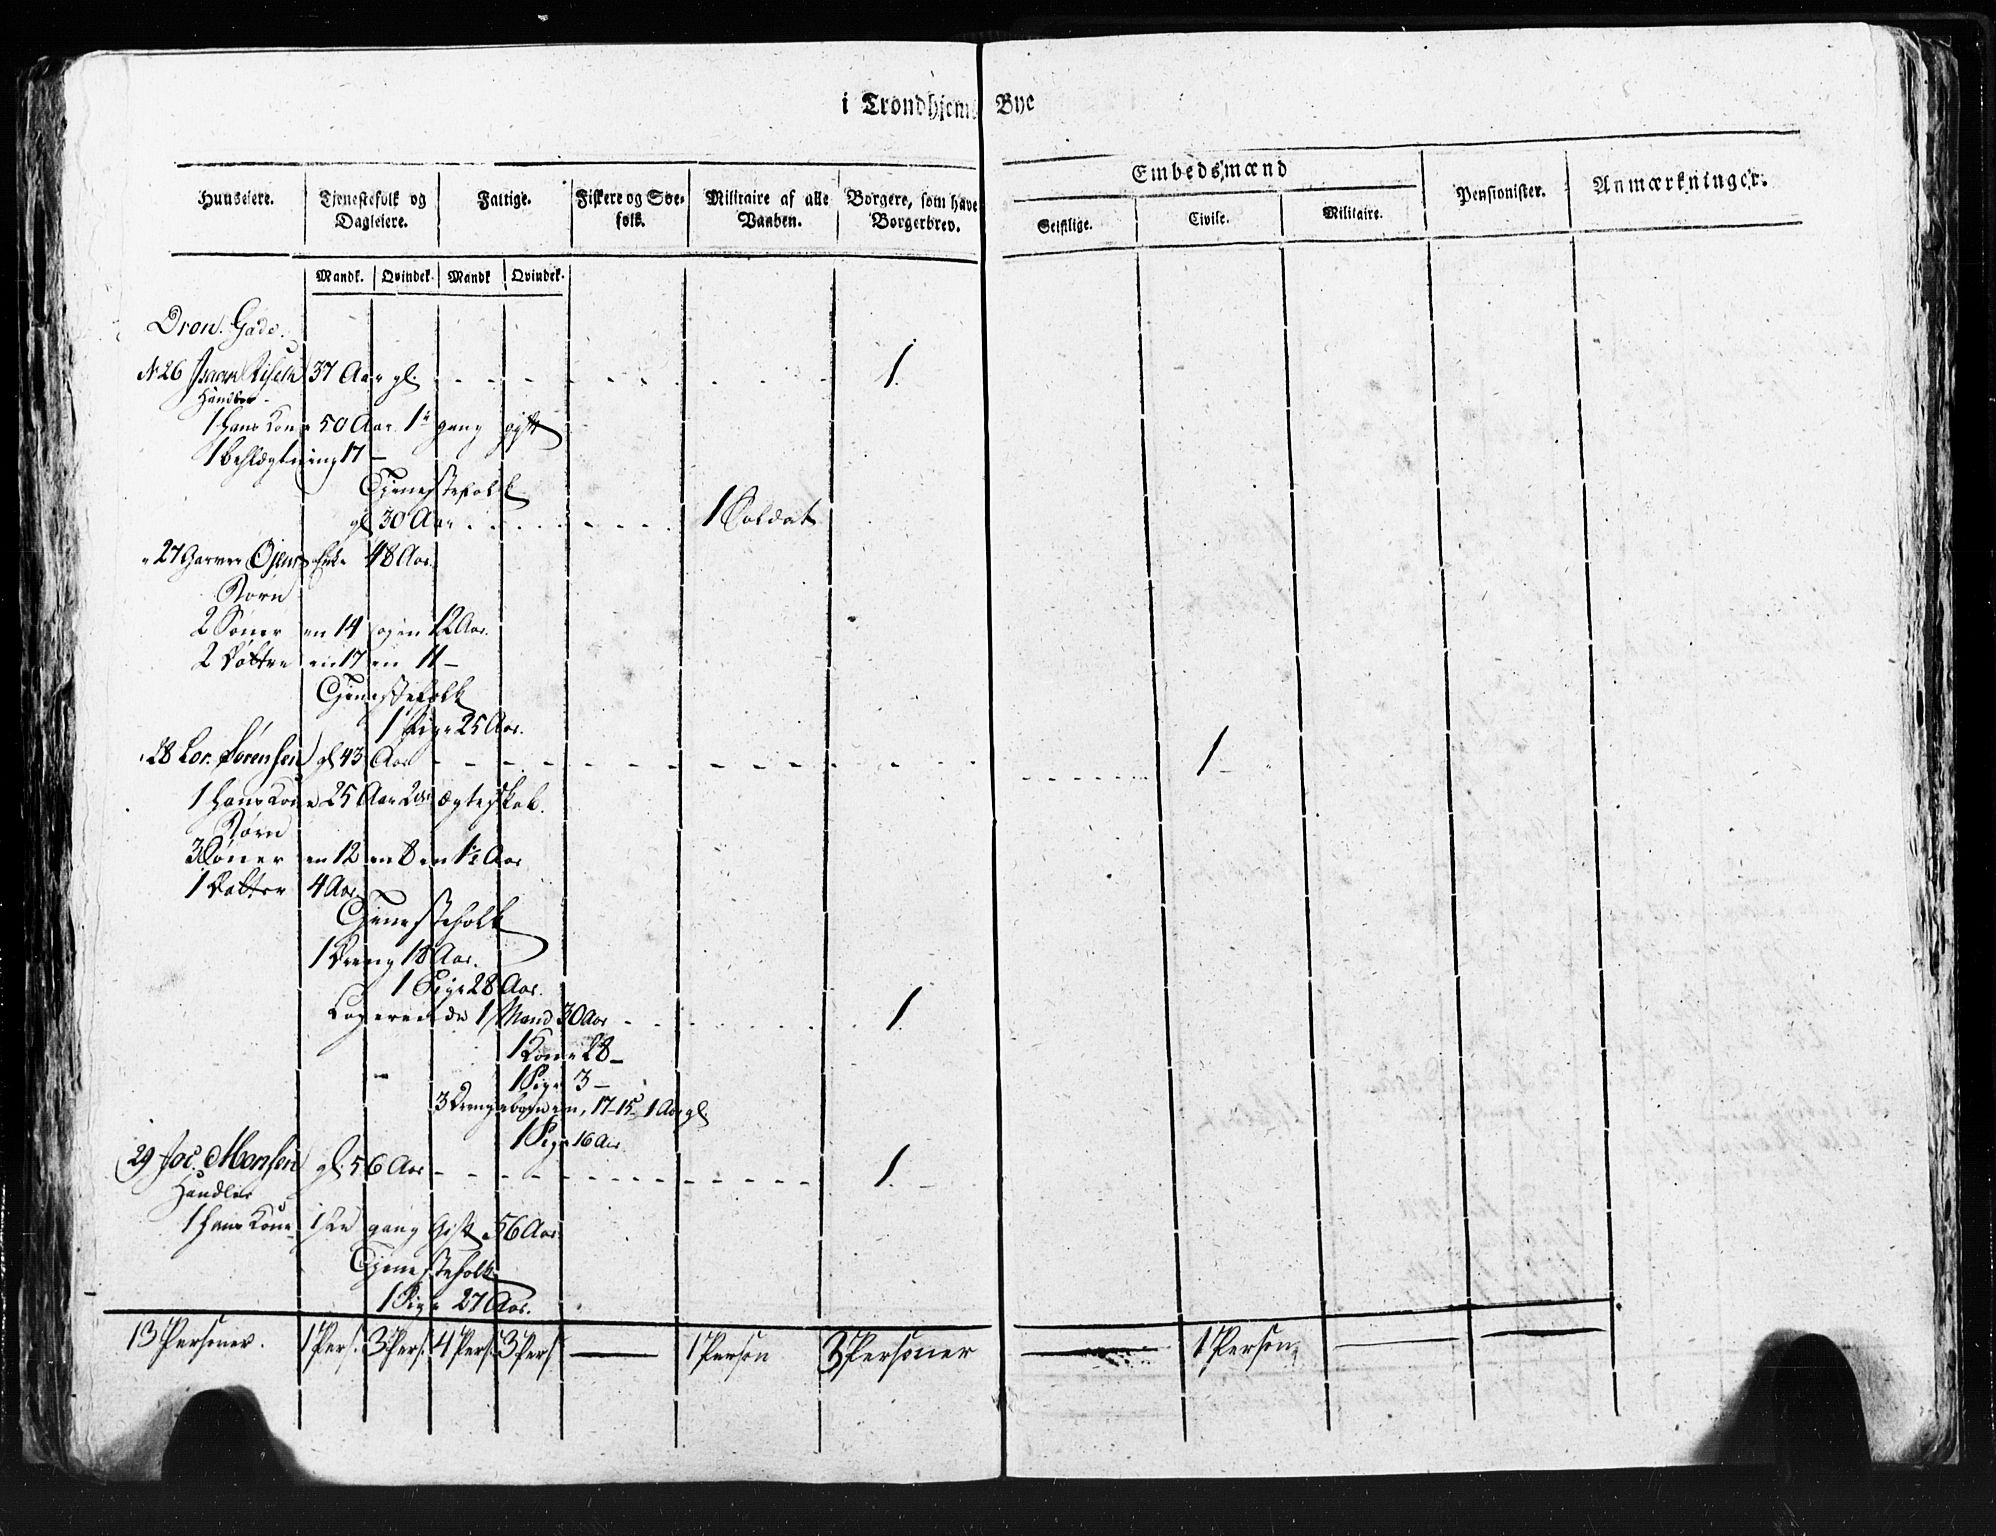 i Trondhjems Bye
Huuseiere. Tjenestefolk og Dagleiere. Fattige. Fiskere og Søefolk. Militaire af alle Vaaben. Borgere, som have Borgerbrev. Embedsmænd Geistlige. Civile. Militaire. Pensionister. Anmærkninger.
Mandk. Qvindek. Mandk Qvindek.
Dron. Gade.
N 26 Isaac 37 Aar gl. 1.
Handler
1 hans Kone 50 Aar 1e gang gift
1 beslægtning 17 –
Tjenestefolk
gl 30 Aar 1 Soldat
" 27 Garver Enke 48 Aar.
Børn
2 Sønner en 14 og en 12 Aar.
2 Døttre en 17 en 11 –
Tjenestefolk
1 Pige 25 Aar.
" 28 Lor. Sørensen gl 43 Aar 1
1 hans Kone 25 Aar 2det ægteskab.
Børn
3 Sønner en 12 en 8 en 1½ Aar
1 Datter 4 Aar
Tjenestefolk
1 Dreng 18 Aar.
1 Pige 28 Aar.
Logerende 1 Mand 30 Aar 1.
1 Kone 28 –
1 Pige 3 –
3 Drengebørn en, 17 – 15 – 1 Aar gl
1 Pige 16 Aar
29 Joc. Monsen gl. 56 Aar 1.
Handler
1 hans Kone 1ste gang Gift 56 Aar.
Tjenestefolk
1 Pige 27 Aar.
13 Personer. 1 Pers. 3 Pers. 4 Pers. 3 Pers — 1 Person 3 Personer — 1 Person — —